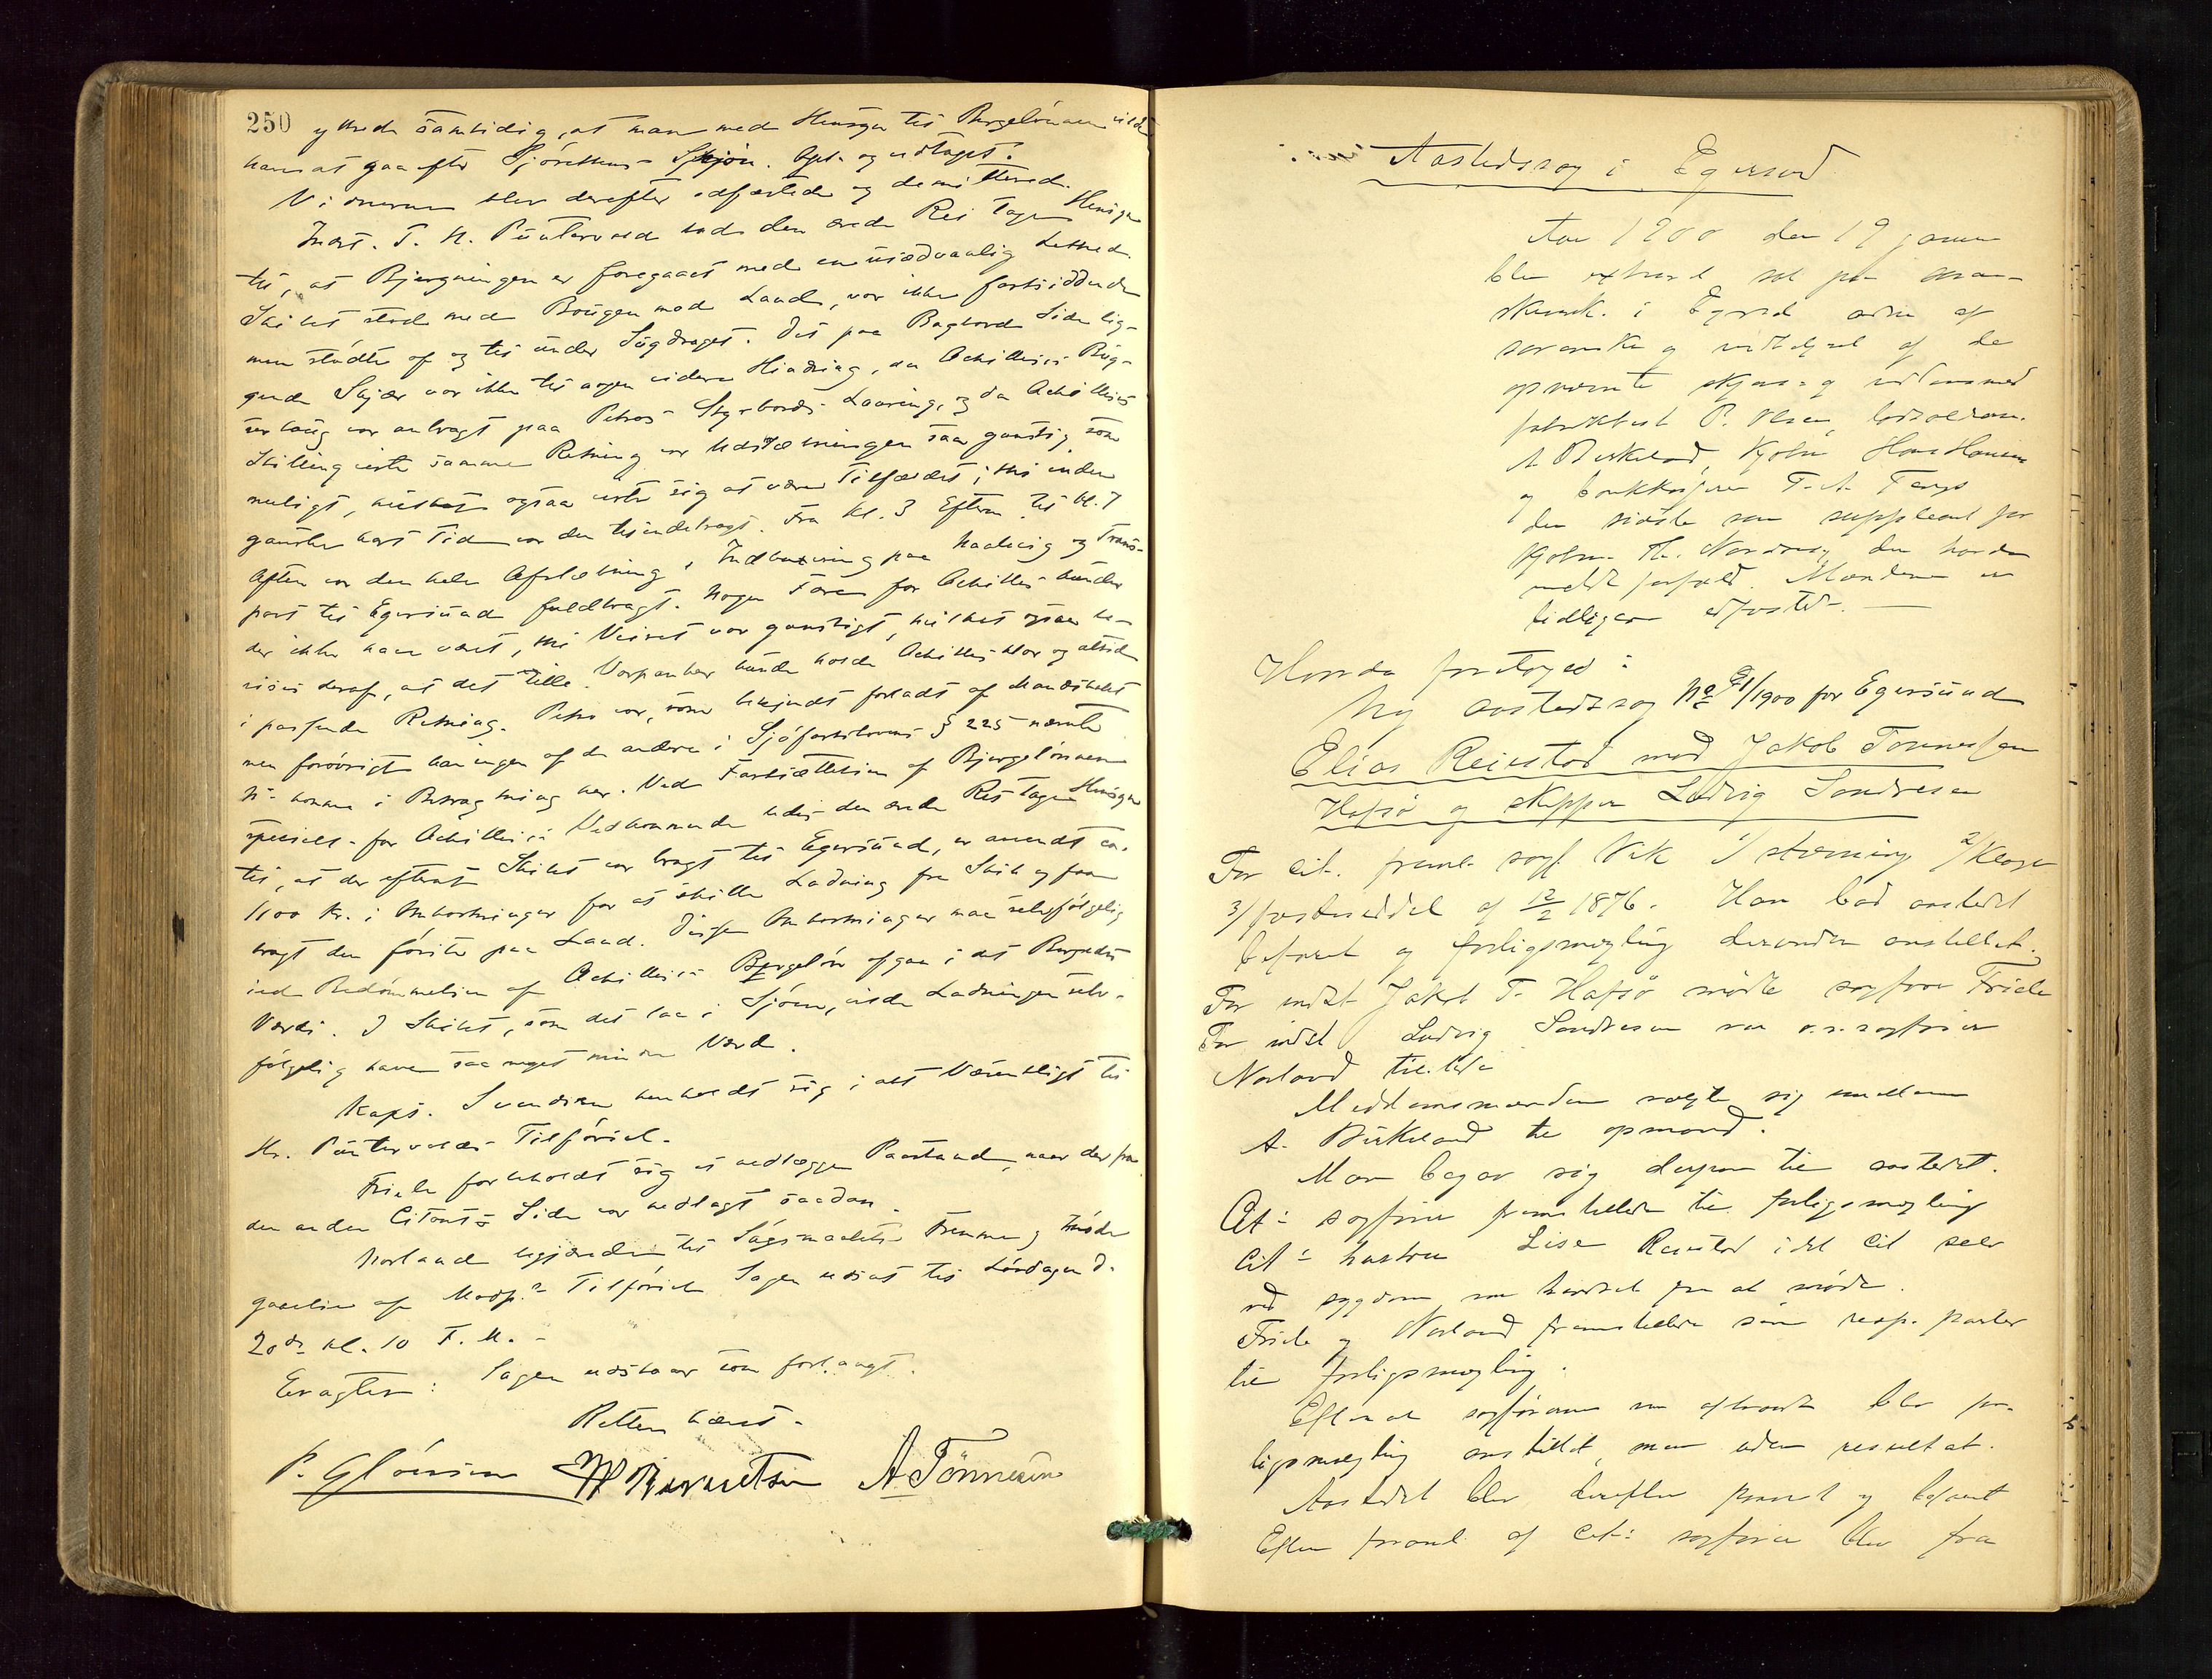 250 ytrede samtidig, at man med Hensyn til Bergelønnen vilde
have at gaa efter Sjørettens Skjøn. Opl. og vedtaget.
Vidnerne blev derefter edfæstede og demitterede.
Indst. T. H. Püntervold bad den ærede Ret tage Hensyn
til, at Bjergningen er foregaaet med en usædvanlig Lethed.
Skibet stod med Bougen mod Land, var ikke fastsiddende
men stødte af og til under Sugdraget. Det paa Bagbords Side lig-
gende Skjær var ikke til nogen videre Hindring, da Achilles's Bug-
serbaug var anbragt paa Petros Styrbords Laaring, og da Achilles's
Stilling i samme Retning var Udslæbningen saa gunstig som
muligt, hvilket ogsaa viste sig at være Tilfældet; thi inden
ganske kort Tid var den tilendebragt. Fra Kl. 3 Efterm. til Kl. 7
Aften var den hele Afslæbning, Indbuxering paa Havn og Trans-
port til Egersund fuldbragt. Nogen Fare for Achilles kunde
der ikke have været, thi Veiret var gunstigt, hvilket ogsaa be-
vises deraf, at det lille Varpanker kunde holde Achilles klar og altid
i passende Retning. Petro var, som bekjendt forladt af Mandskabet
men forøvrigt kan ingen af de andre i Sjøfartslovens § 225 nævnte
komme i Betragtning her. Ved Fastsættelsen af Bjergelønnen
specielt for Achilles's Vedkommende bedes den ærede Ret tage Hensyn
til, at der efterat Skibet var bragt til Egersund, er anvendt ca.
1100 Kr. i Omkostninger for at skille Ladning fra Skib og faa
bragt den første paa Land. Disse Omkostninger maa selvfølgelig
ved Bedømmelsen af Achilles's Bergeløn afgaa i det Bergedes
Værdi. I Skibet, som det laa i Sjøen, vilde Ladningen selv-
følgelig have saa meget mindre Værd.
Kapt. Svendsen henholdt sig i alt Væsentligt til
Hr. Püntervolds Tilførsel.
Friele forbeholdt sig at nedlægge Paastand, naar der fra
den anden Citants Side var nedlagt saadan.
Norland begjærede til Sagsmaalets Fremme og Imøde-
gaaelse af Modp.s Tilførsel Sagen udsat til Lørdagen d.
20de Kl. 10 F. M. -
Eragtes: Sagen udstaar som forlangt.
Retten hævet.
P. Glørsen A. Tönnesen
Aastedssag i Egersund
Aar 1900 den 19 januar
blev extraret sat paa
i Egersund af
sorenskr. og af de
opnævnte skjøns- og meddomsmænd
fabrikbest. P. Olsen, lodsoldern.
A Birkeland, Kjøbm. Hans Hansen
og T. A.
den sidste som suppleant for
Kjøbm. Th. Nordaas, der havde
meldt forfald. Mændene er
tidligere edfæstede. —
Hvorda foretoges:
Ny aastedssag No 1/1900 for Egersund
Elias Reinstad mod Jakob Tønnessen
Hafsø og skipper Ludvig Sandresen
For cit. freml. sagf. Vik 1/ stævning 2/ klage
3/ fæsteseddel af 12/2 1876. Han bad aastedet
befaret og forligsmægling derunder anstillet.
For indst. Jakob T. Hafsø mødte sagfører Friele
For indst. Ludvig Sandresen var o.r.sagfører
Norland tilstede
Meddomsmændene valgte sig imellem
A. Birkeland til opmand.
Man begav sig derpaa til aastedet.
Cit.s sagfører fremstilledes til forligsmægling
Cit.s hustru Lise Reinstad idet cit. selv
ved sygdom var hindret fra at møde.
Friele og Norland fremstillede sine resp. parter
til forligsmægling.
Efter at sagførerne var aftraadt blev for-
ligsmægling anstillet, men uden resultat.
Aastedet blev derefter paavist og befaret
Efter forml. af cit.s sagfører blev fra